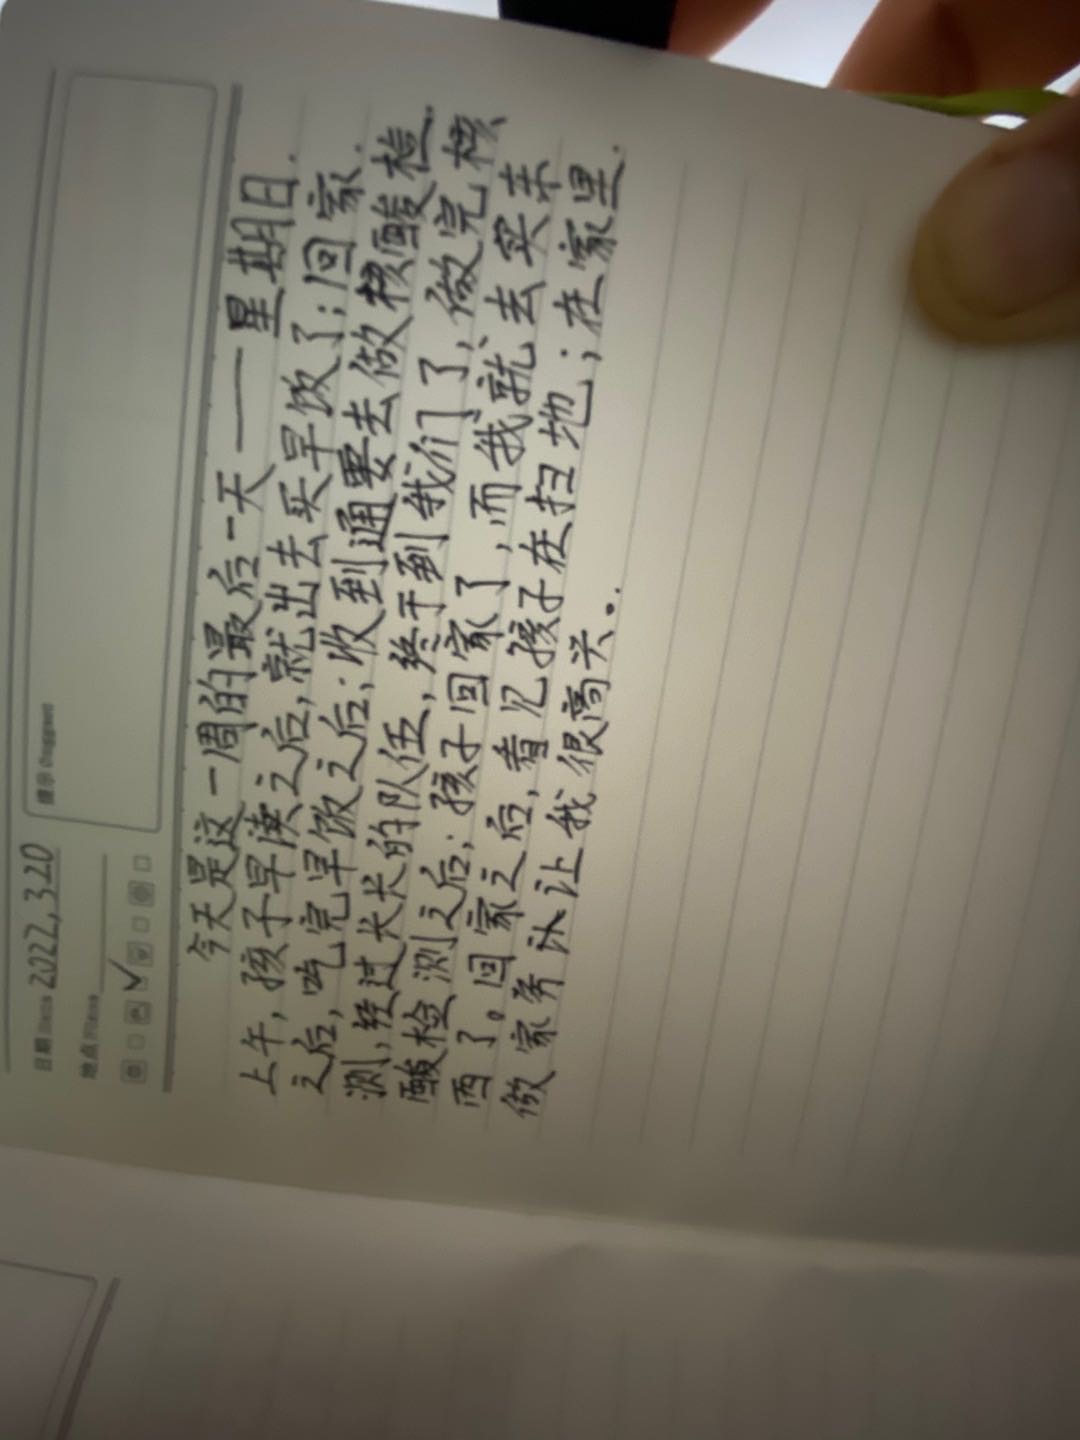 日期 Date 2022, 3.20
提示 Suggest
地点 Place
今天是这一周的最后一天——星期日.
上午,孩子早读之后,就出去买早饭了;回家.
之后,吃完早饭之后;收到通要去做核酸检.
测,经过长长的队伍,终于到我们了,做完核
酸检测之后;孩子回家了,而我就去买东
西了。回家之后,看见孩子在扫地;在家里.
做家务让我很高兴..